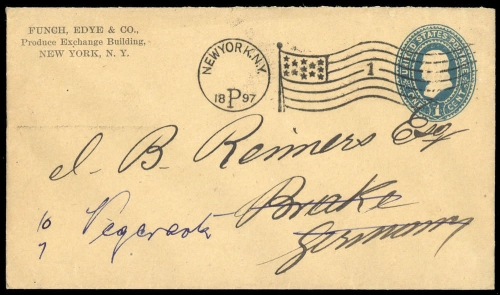 FUNCH, EDYE & CO.,
Produce Exchange Building,
NEW YORK, N. Y.
NEW YORK, N.Y.
P
18 97
1
UNITED STATES POSTAGE
ONE CENT
J. B. Reiners Esq
Brake
Germany
10
7